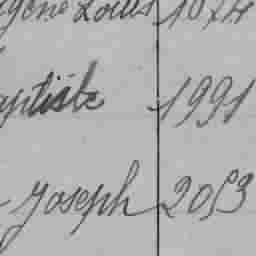 gène Louis 1074
aptiste 1991
Joseph 2053